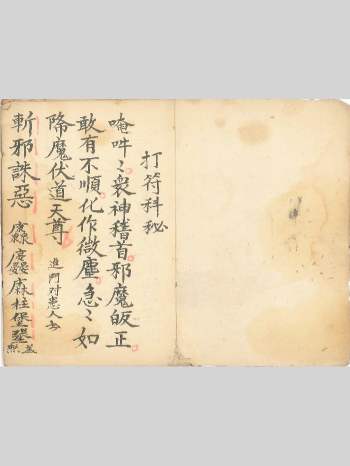 打符科秘
唵吽〻衆神稽首邪魔皈正
敢有不順化作微塵急〻如
降魔伏道天尊 進門对患人念
斬邪誅惡